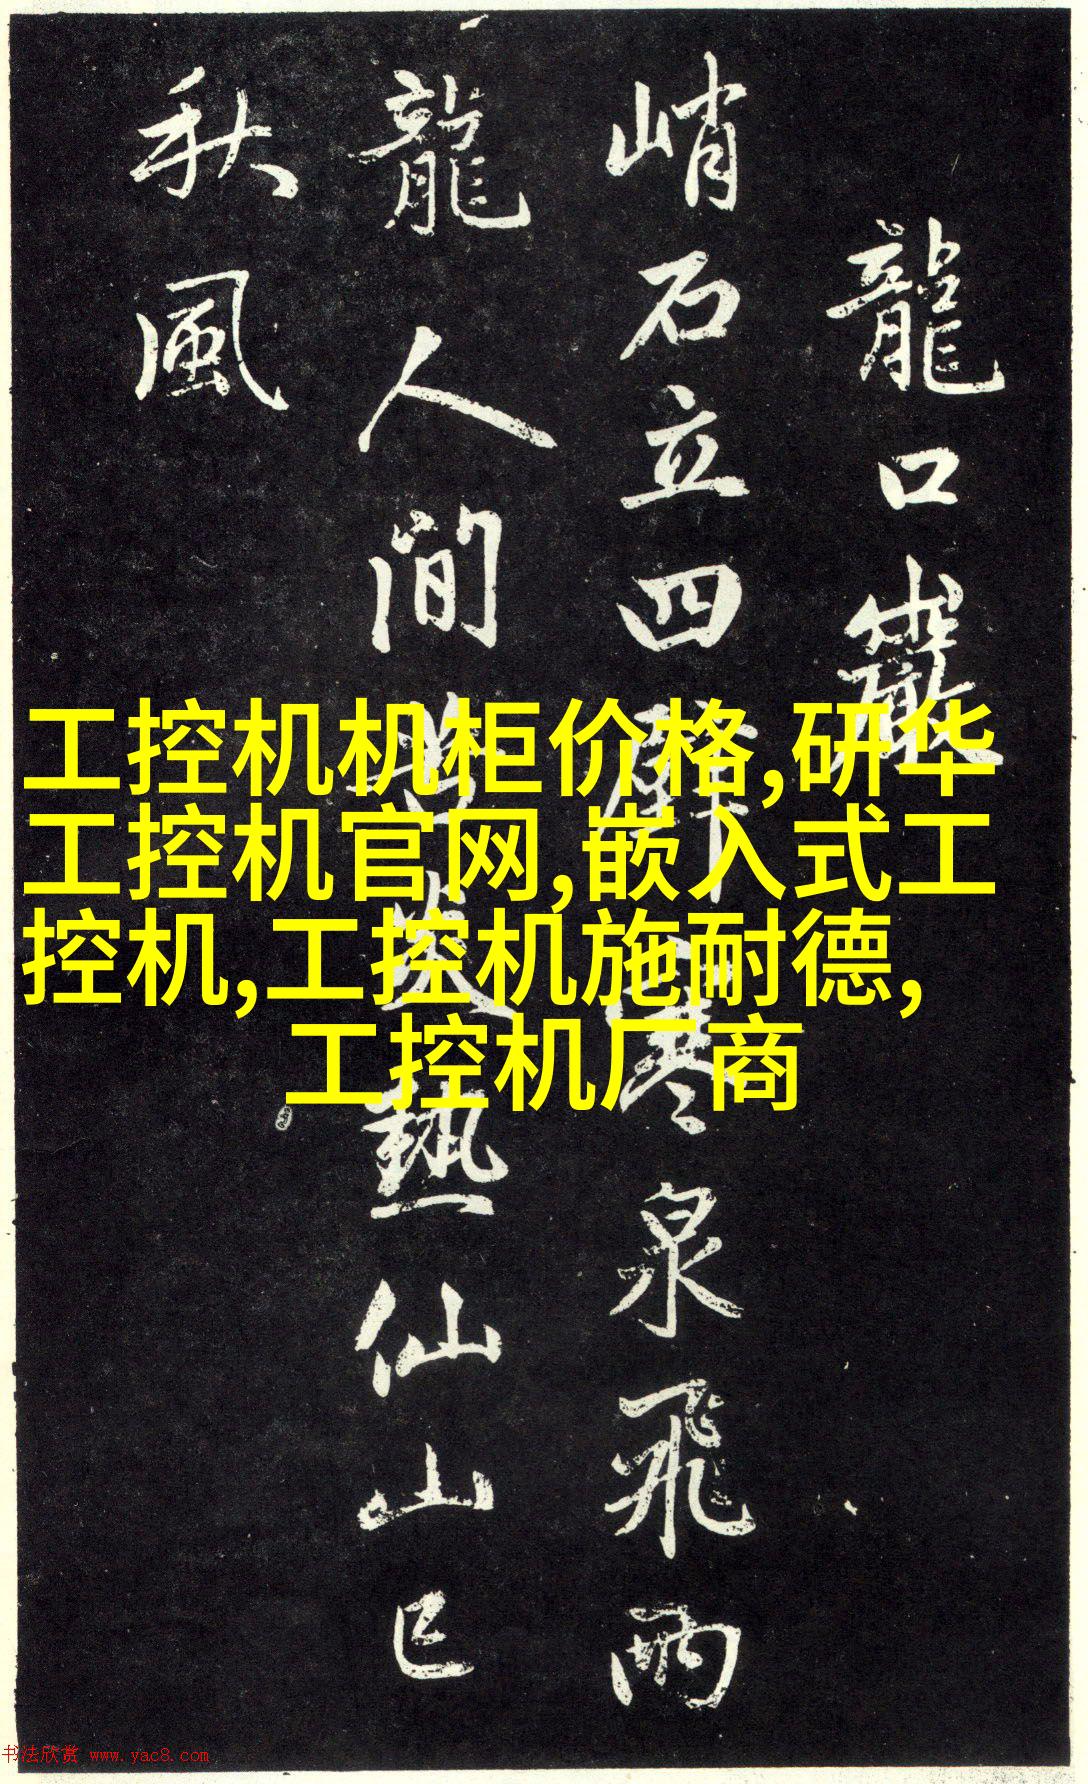 龍口巖
峭石立四壁寒泉飛兩
龍人間苦炎熱仙山已
秋風
工控机机柜价格,研华
工控机官网,嵌入式工
控机,工控机施耐德,
工控机厂商
书法欣赏 www.yac8.com